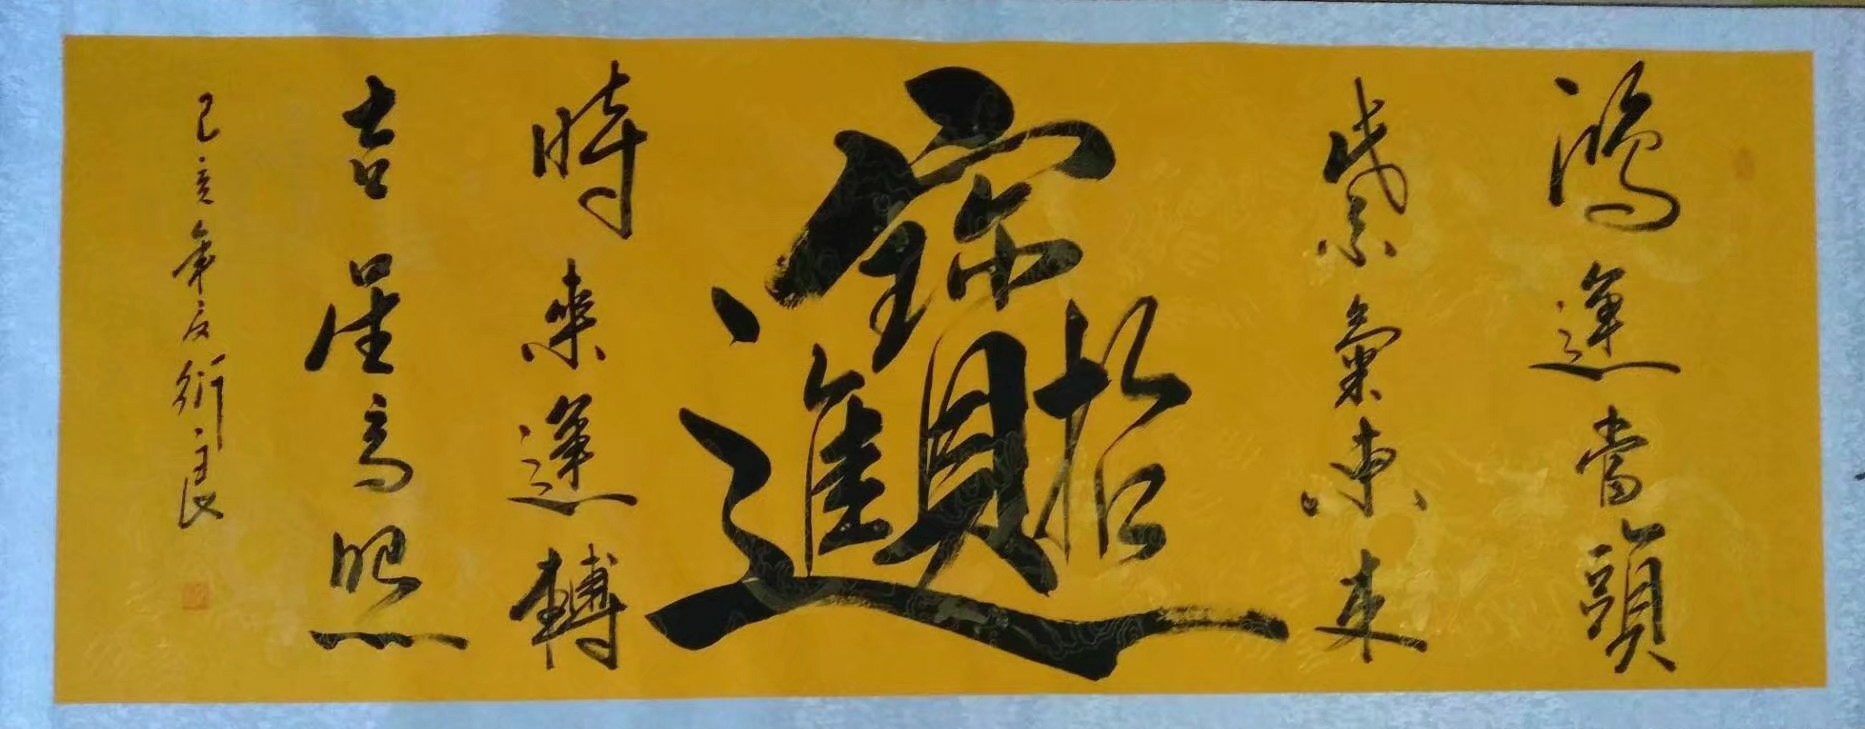 鴻運當頭
紫氣東来
招財進寶
時來運轉
吉星高照
己亥年